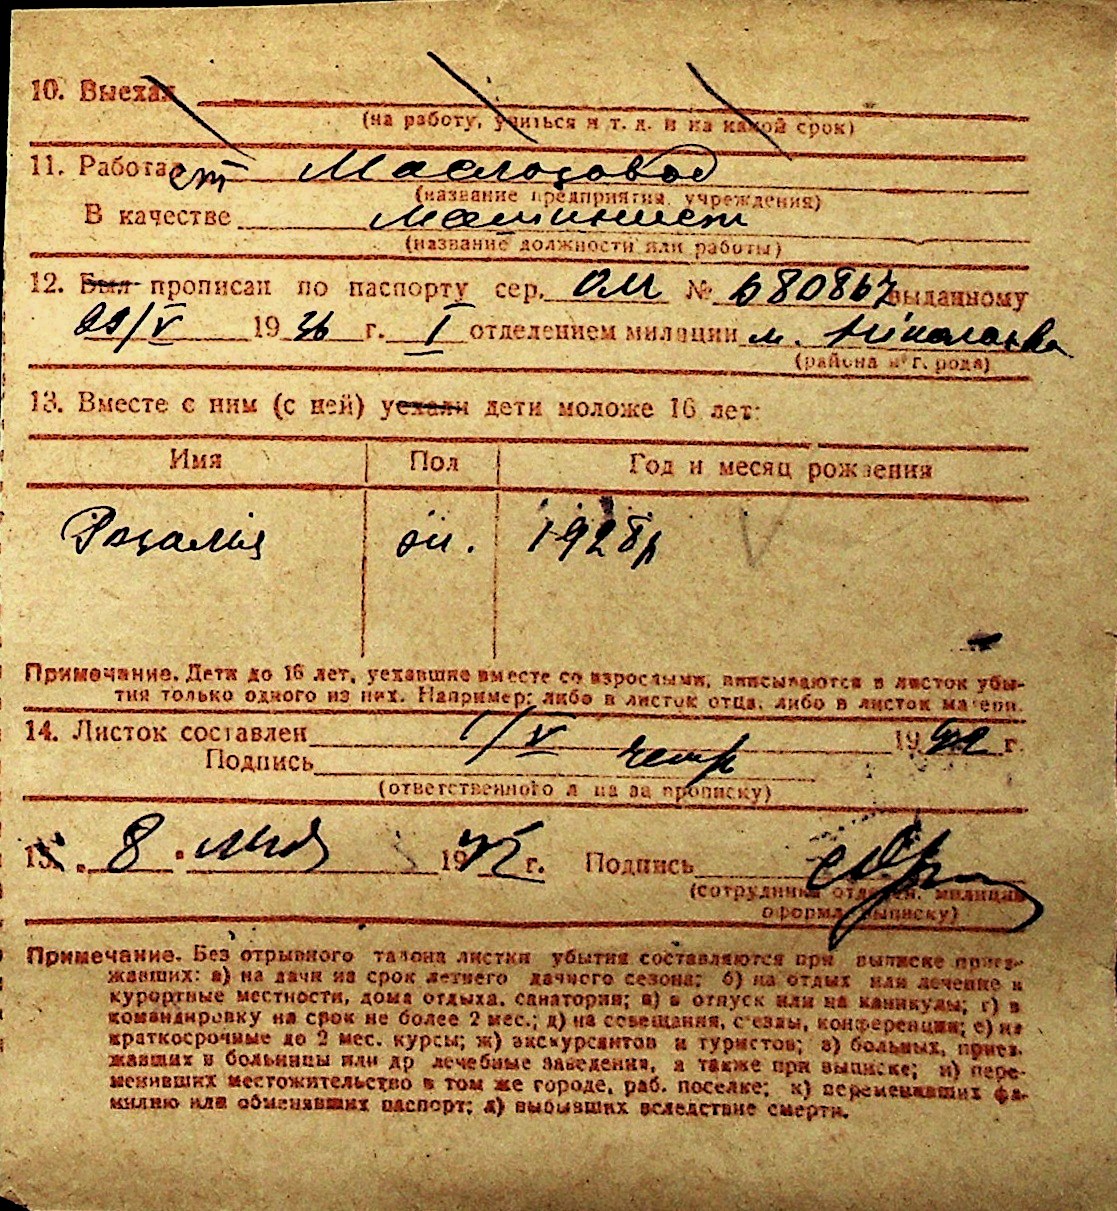 10. Выехал
(на работу, учиться и т. д. и на какой срок)
11. Работает Маслозавод
(название предприятия, учреждения)
В качестве машинист
(название должности или работы)
12. Был прописан по паспорту сер. ОМ № 680867 выданному
1936 г. I отделением милиции м. Ніколаєва
(района и г. рода)
13. Вместе с ним (с ней) уехали дети моложе 16 лет:
Имя Пол Год и месяц рождения
Розалія ж. 1928 р
Примечание. Дети до 16 лет, уехавшие вместе со взрослыми, вписываются в листок убы-
тия только одного из них. Например: либо в листок отца, либо в листок матери.
14. Листок составлен 1/V 19 г.
Подпись
(ответственного л ца за прописку)
15. „ 8 " 19 г. Подпись
(сотрудника отделен. милиции
оформл. выписку)
Примечание. Без отрывного талона листки убытия составляются при выписке приез-
жавших: а) на дачи на срок летнего дачного сезона; б) на отдых или лечение в
курортные местности, дома отдыха, санатории; в) в отпуск или на каникулы; г) в
командировку на срок не более 2 мес.; д) на совещания, с'езды, конференции; е) на
краткосрочные до 2 мес. курсы; ж) экскурсантов и туристов; з) больных, приез-
жавших в больницы или др лечебные заведения, а также при выписке; и) пере-
менивших местожительство в том же городе, раб. поселке; к) переменивших фа-
милию или обменявших паспорт; л) выбывших вследствие смерти.